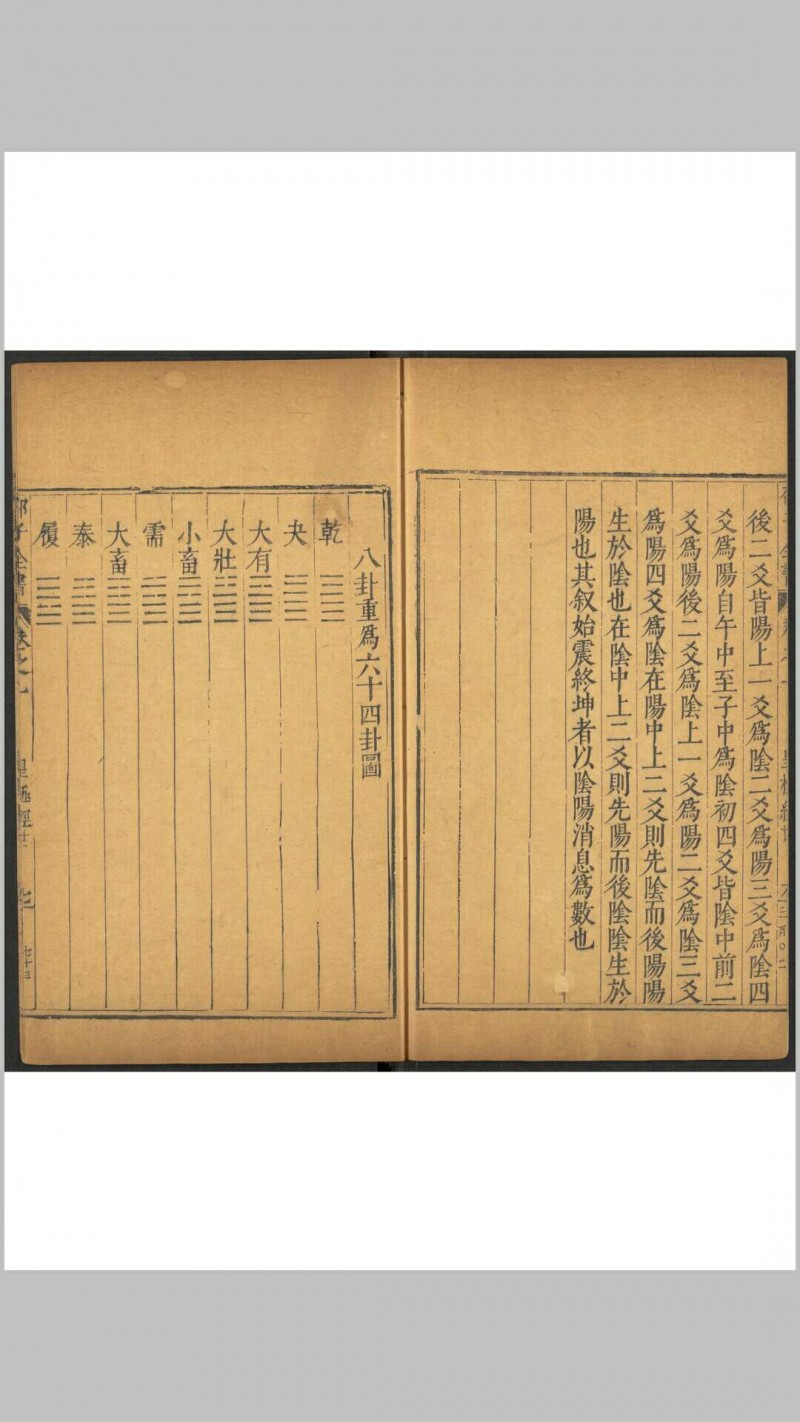 後二爻皆陽上一爻爲陰二爻爲陽三爻爲陰四
爻爲陽自午中至子中爲陰初四爻皆陰中前二
爻爲陽後二爻爲陰上一爻爲陽二爻爲陰三爻
爲陽四爻爲陰在陽中上二爻則先陰而後陽陽
生於陰也在陰中上二爻則先陽而後陰陰生於
陽也其叙始震終坤者以陰陽消息爲數也
八卦重爲六十四卦圖
乾
夬
大有
大壯
小畜
需
大畜
泰
履
子全書 卷之 皇極經世